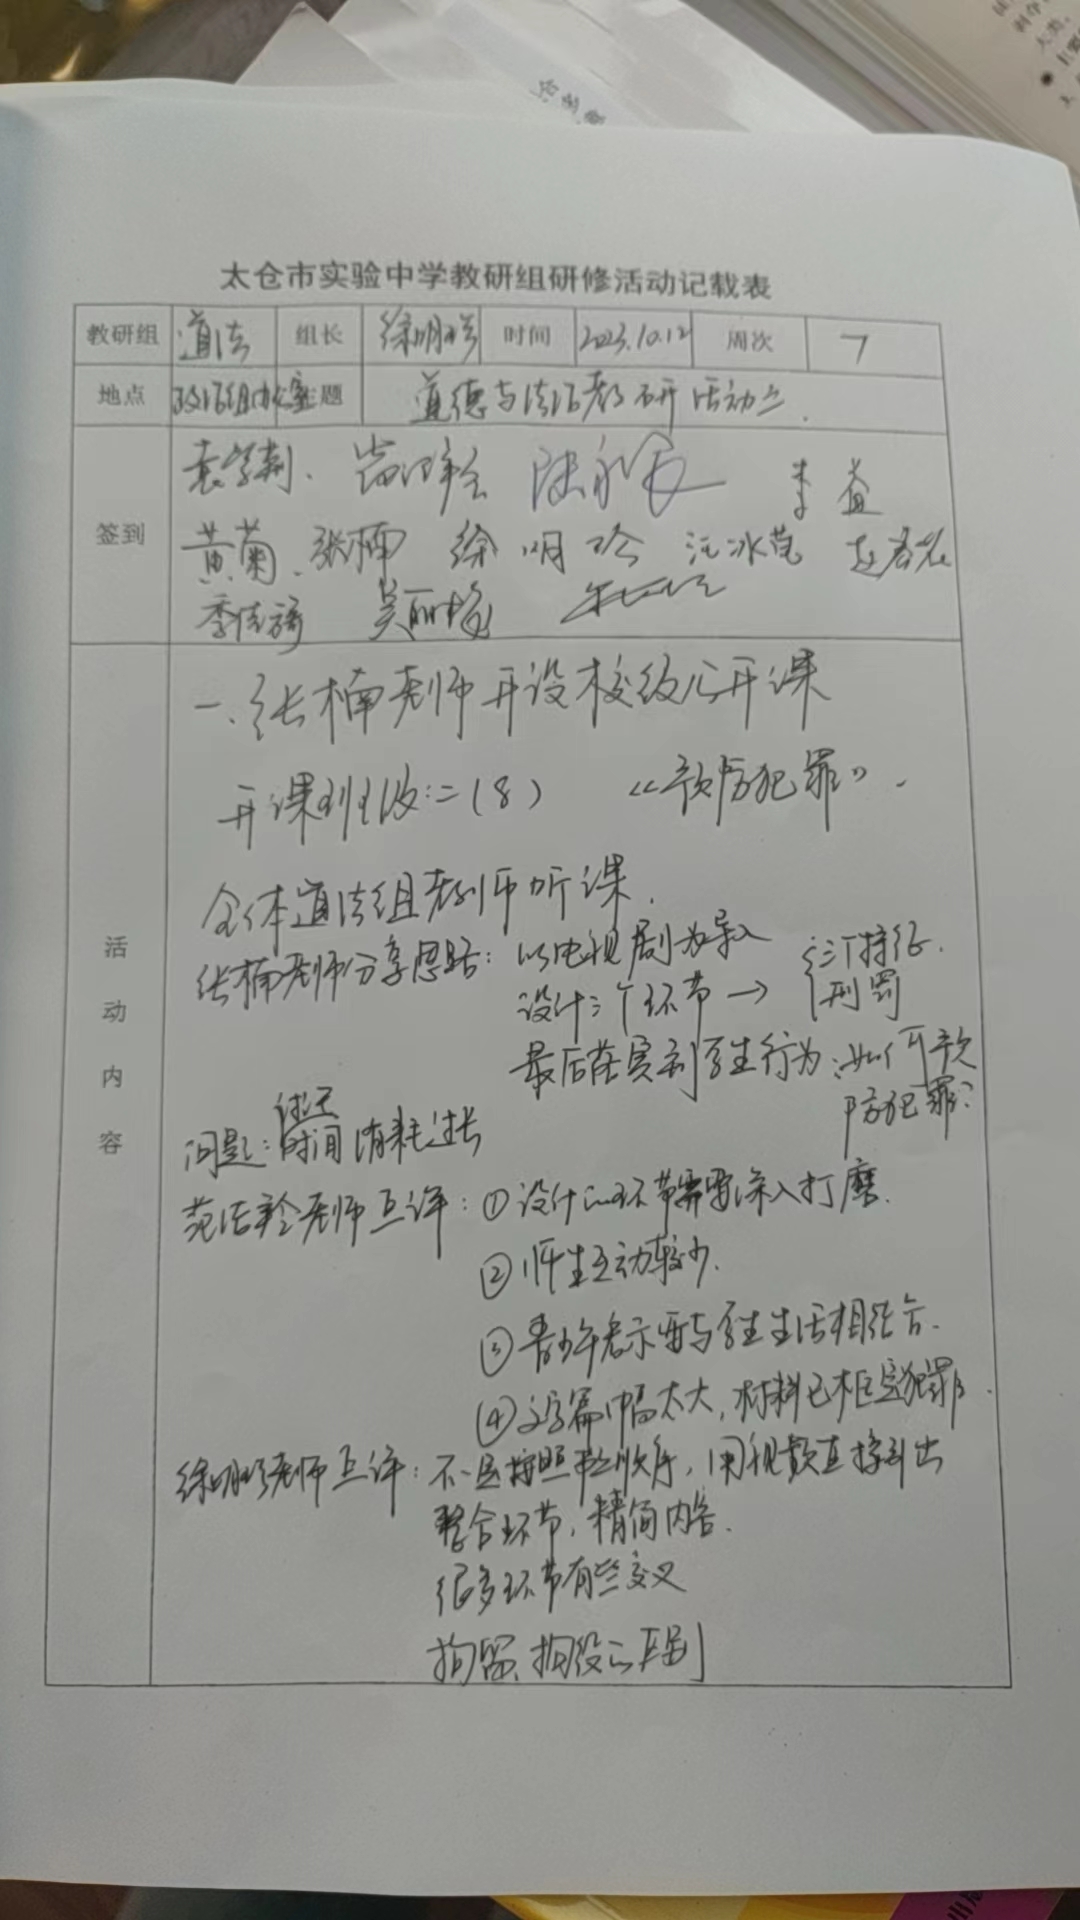 太仓市实验中学教研组研修活动记载表
教研组 道法 组长 徐明 时间 2023.10.12 周次 7
地点 政治组办公室 主题 道德与法治教研活动
签到
黄菊、张楠 徐明 汪冰
季佳 吴丽
活动内容
一、张楠老师开设校级公开课
开课班级:二(8) 《预防犯罪》.
全体道法组老师听课.
张楠老师分享思路: 以电视剧为导入
设计三个环节→ {三个特征. 刑罚
最后落实到学生行为:如何预
防犯罪?
问题: 讨论时间消耗过长
老师互评: ①设计的环节需要深入打磨.
②师生互动较少.
③青少年启示要与学生生活相结合.
④文字篇幅太大,材料已框定犯罪.
徐明老师互评: 不一定按照书上顺序,用视频直接引出
整合环节,精简内容.
很多环节有些交叉
拘留、拘役的区别